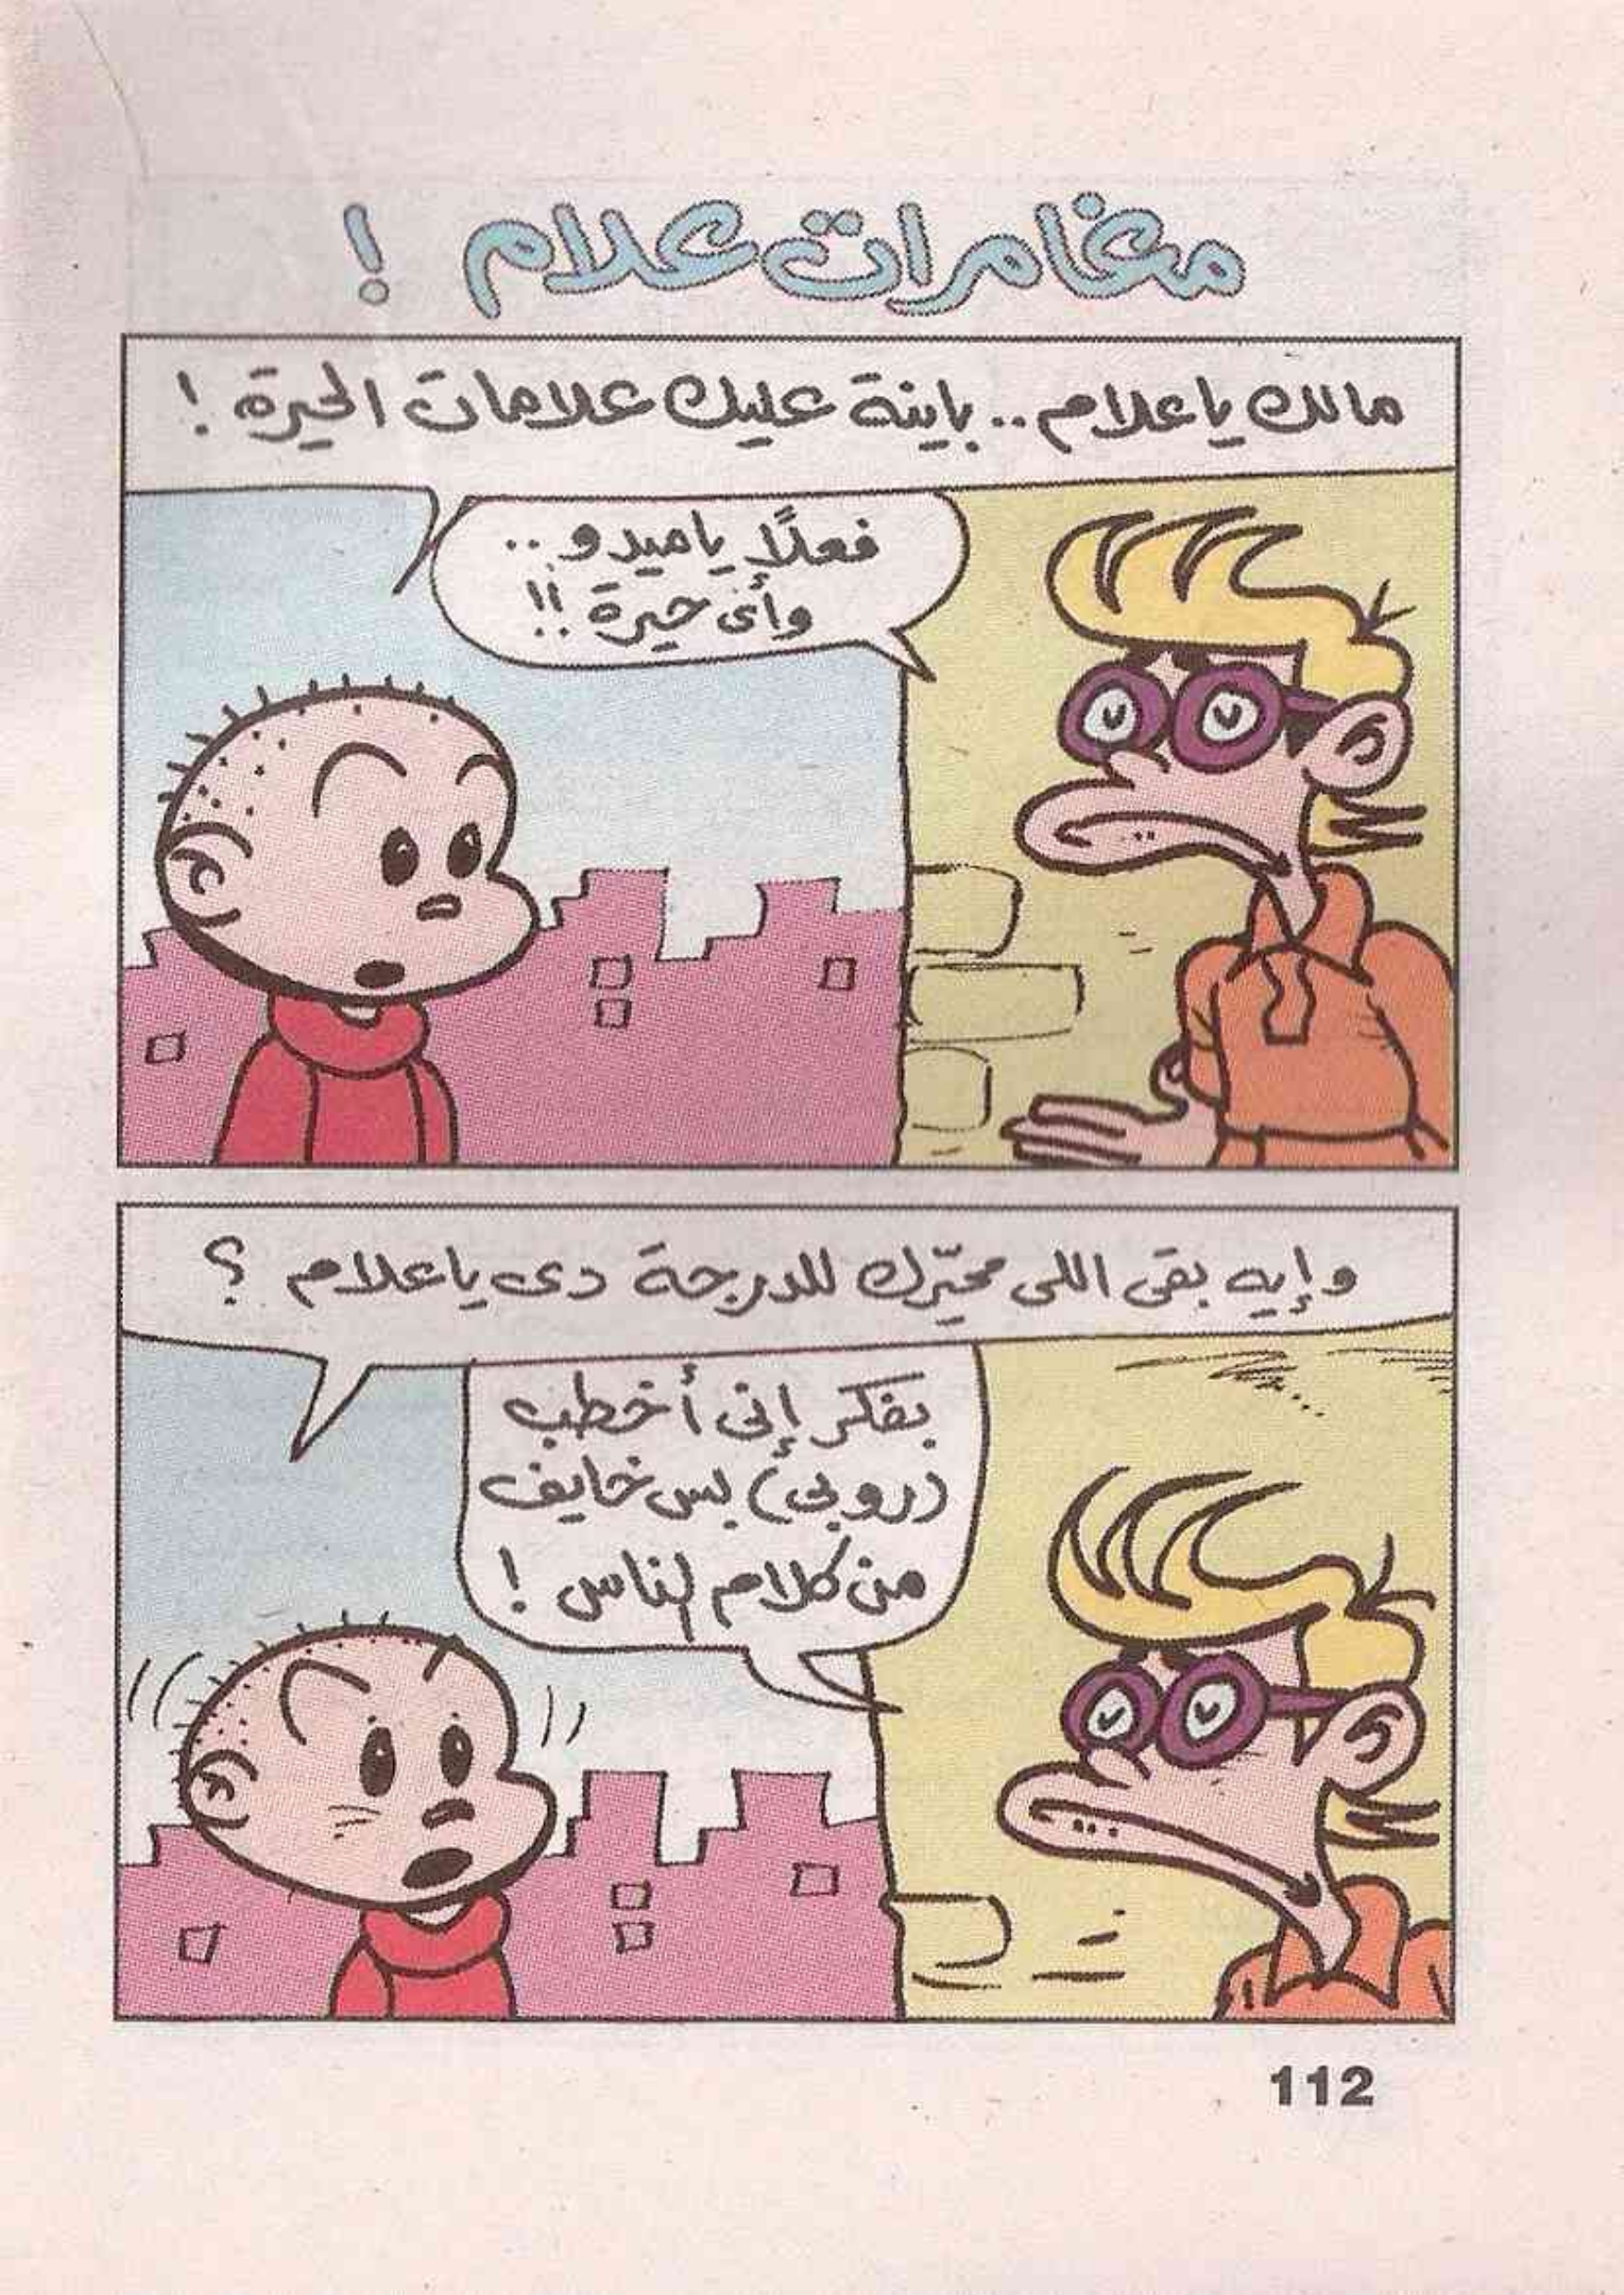 مغامرات علام !
مالك ياعلام .. باينة عليك علامات الحيرة !
فعلًا ياميدو ..
وأى حيرة !!
وإيه بقى اللى محيّرك للدرجة دى ياعلام ؟
بفكر إنى أخطب
(روبى) بس خايف
من كلام الناس !
112